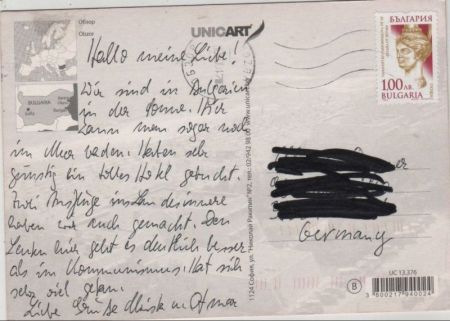 Обзор
Obzor
BULGARIA
UNICART
БЪЛГАРИЯ
1.00 лв
BULGARIA
Hallo meine Liebe!
Wir sind in Bulgarien
in der Sonne. Hier
kann man sogar noch
im Meer baden. Haben sehr
günstig ein tolles Hotel gebucht.
Zwei Ausflüge ins Landesinnere
haben wir auch gemacht. Den
Leuten hier geht es deutlich besser
als im Kommunismus. Hat sich
sehr viel getan.
Liebe Grüße u. Otmar
Germany
1124 София, ул. "Николай Ракитин" №2, тел.: 02/942 98 00 www.unicart
UC 13.376
B
3 800217 940024